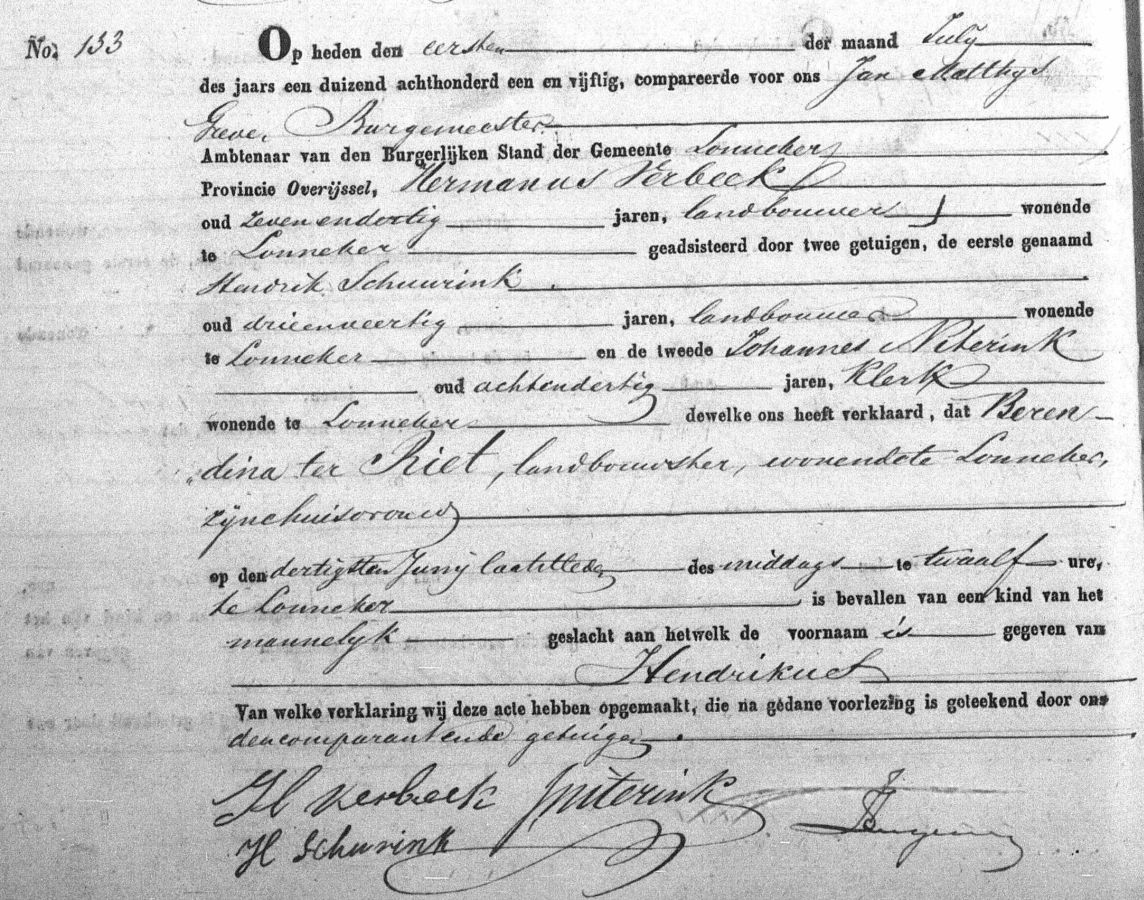 No. 133
Op heden den eersten der maand July
des jaars een duizend achthonderd een en vijftig, compareerde voor ons Jan Matthys
Greve, Burgemeester
Ambtenaar van den Burgerlijken Stand der Gemeente Lonneker
Provincie Overijssel, Hermanus Verbeek
oud zevenendertig jaren, landbouwer wonende
te Lonneker geadsisteerd door twee getuigen, de eerste genaamd
Hendrik Schuurink
oud drieenveertig jaren, landbouwer wonende
te Lonneker en de tweede Johannes Niterink
oud achtendertig jaren, Klerk
wonende te Lonneker dewelke ons heeft verklaard, dat Beren-
dina ter Riet, landbouwster, wonende te Lonneker,
zyne huisvrouw
op den dertigsten Juny laatstleden des middags te twaalf ure,
te Lonneker is bevallen van een kind van het
mannelyk geslacht aan hetwelk de voornaam is gegeven van
Hendrikus
Van welke verklaring wij deze acte hebben opgemaakt, die na gedane voorlezing is geteekend door ons
den comparant ende getuigen.
H Verbeek Jniterink
H Schurink